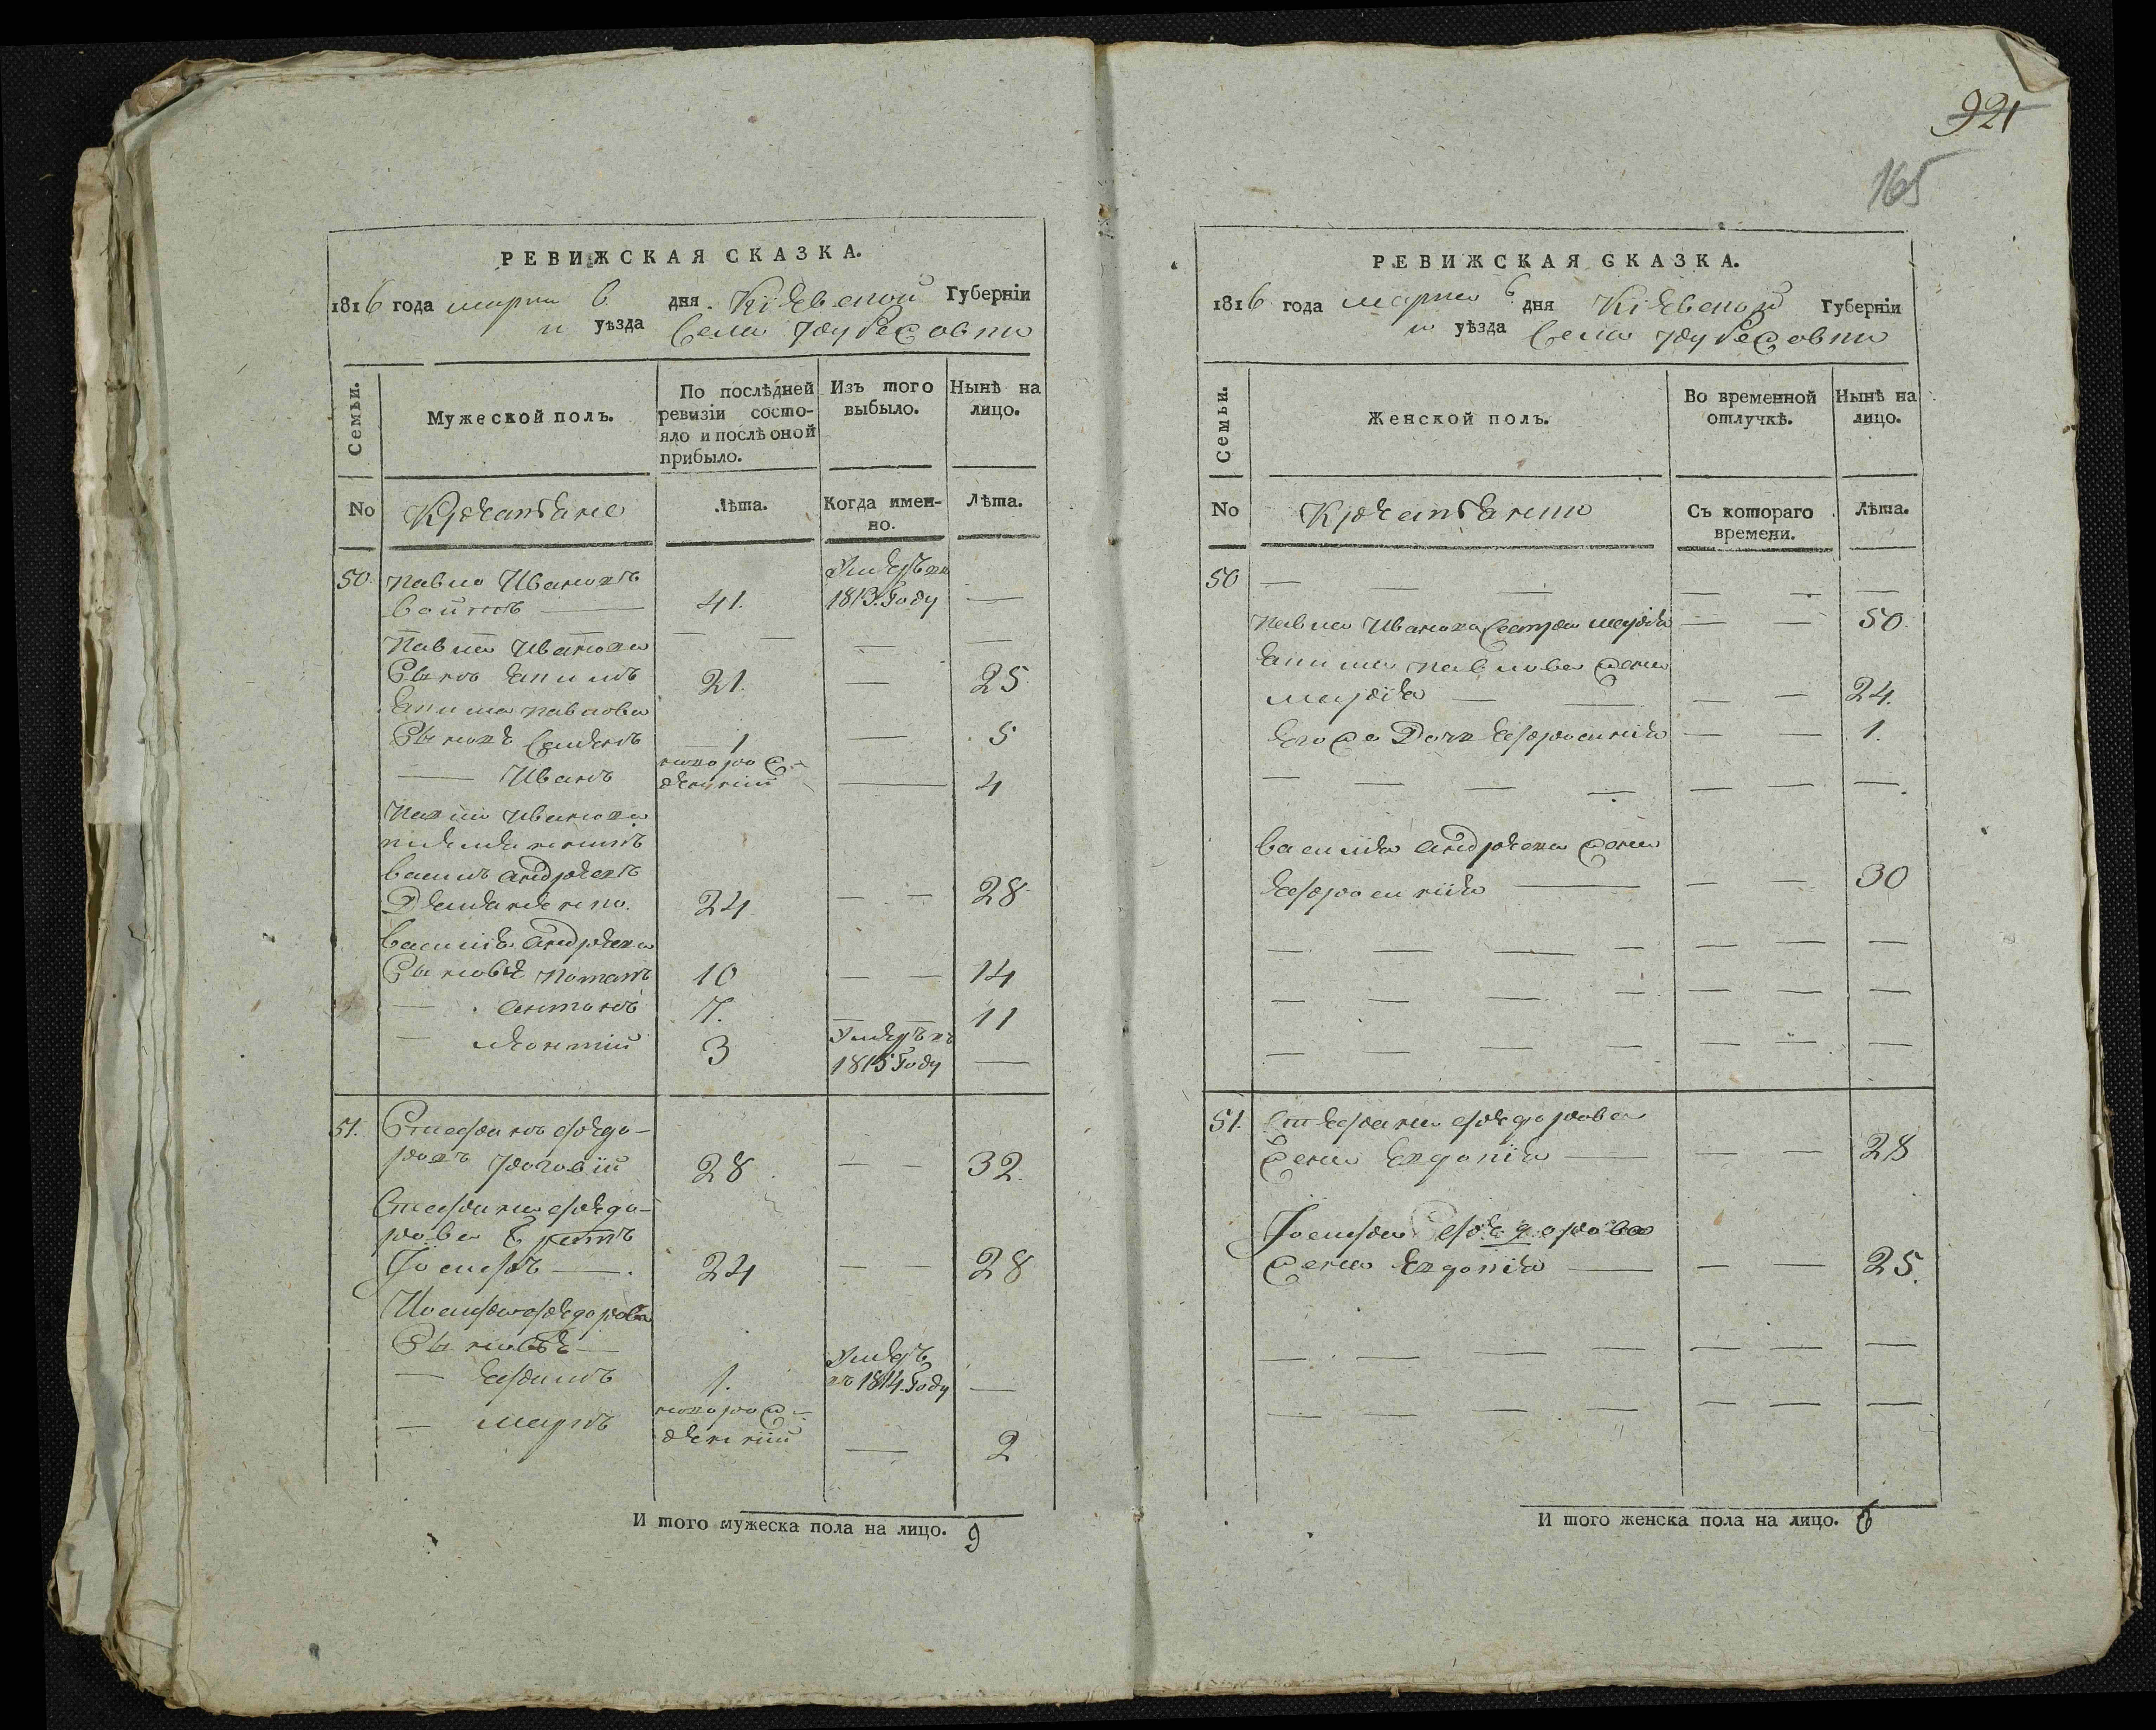 921
165
РЕВИЖСКАЯ СКАЗКА.
1816 года марта 6 дня Кіевской Губерніи
и уѣзда Села
Семьи.
Мужеской полъ.
По послѣдней ревизіи состояло и послѣ оной прибыло.
Изъ того выбыло.
Нынѣ на лицо.
No
Крестьяне
Лѣта.
Когда именно.
Лѣта.
50. Павло Ивановъ Умеръ въ
41. 1813. Году —
Павла Иванова
Сынъ 21. — 25.
Павлова
Семенъ 1 — 5
— Иванъ новорожденный — 4
Павла Иванова
племянникъ
Василь Андреевъ
24 — — 28
Василія Андреева
Сыновья Потапъ 10 — — 14
— Антонъ 7. — — 11
— Леонтій 3 Умеръ въ
1815 Году —
51. Стефанъ Федо-
ровъ 28 — — 32.
Стефана Федо-
рова Братъ
Іосифъ — 24 — — 28
Иосифа Федорова
Сыновья —
— 1. Умеръ
въ 1814. Году —
— Маркъ новорожденный — 2
И того мужеска пола на лицо. 9
РЕВИЖСКАЯ СКАЗКА.
1816 года марта 6 дня Кіевской Губерніи
и уѣзда Села
Семьи.
Женской полъ.
Во временной отлучкѣ.
Нынѣ на лицо.
No
Крестьяне
Съ котораго времени.
Лѣта.
50 — — — — — —
Павла Иванова Сестра Марія — — 50.
Павлова жена
Марія — — — — 24.
Его же Дочь Ефросинія — — 1.
— — — — — — —
Василія Андреева жена
Ефросинія — — — 30
— — — — — — —
— — — — — — —
— — — — — — —
51. Стефана Федорова
жена Евдокія — — — 28
Іосифа Федорова
жена Евдокія — — — 25.
— — — — — — —
— — — — — — —
И того женска пола на лицо. 6